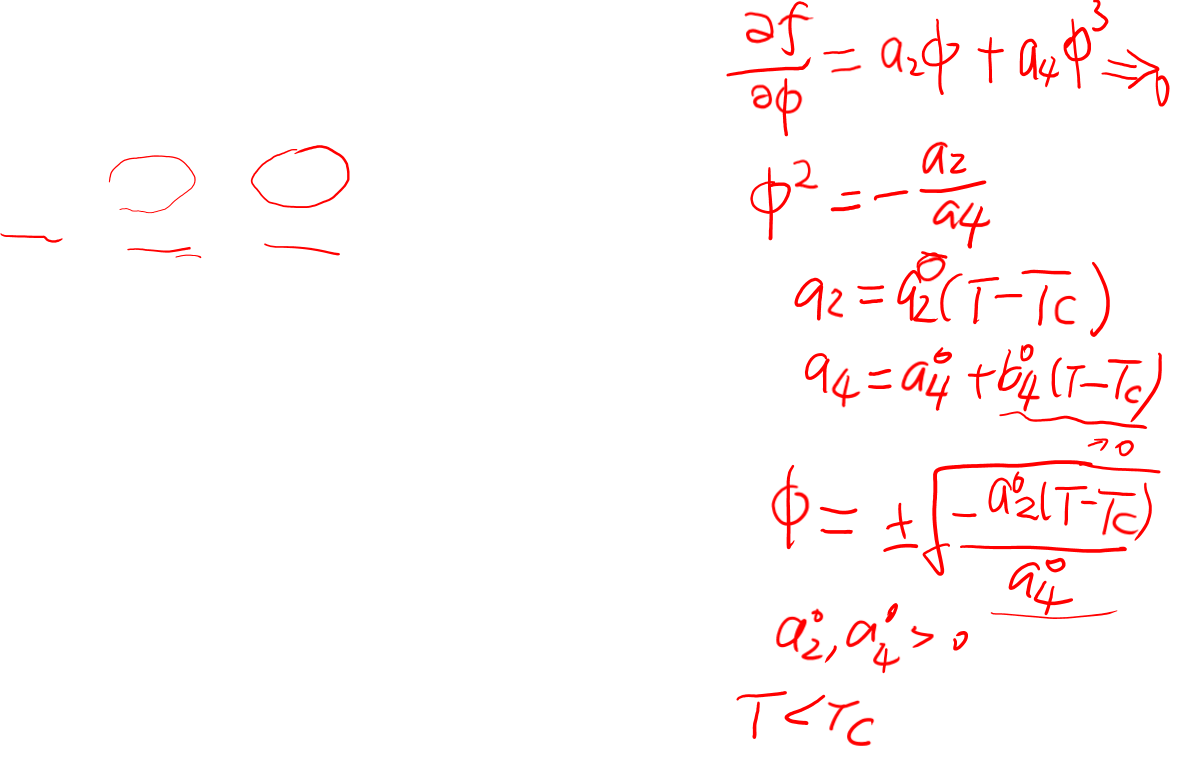 ∂f/∂ϕ = a₂ϕ + a₄ϕ³ ⇒ 0
ϕ² = - a₂/a₄
a₂ = a₂⁰(T-Tc)
a₄ = a₄⁰ + b₄⁰(T-Tc)
→0
ϕ = ± √(-a₂⁰(T-Tc)/a₄⁰)
a₂⁰, a₄⁰ > 0
T < Tc